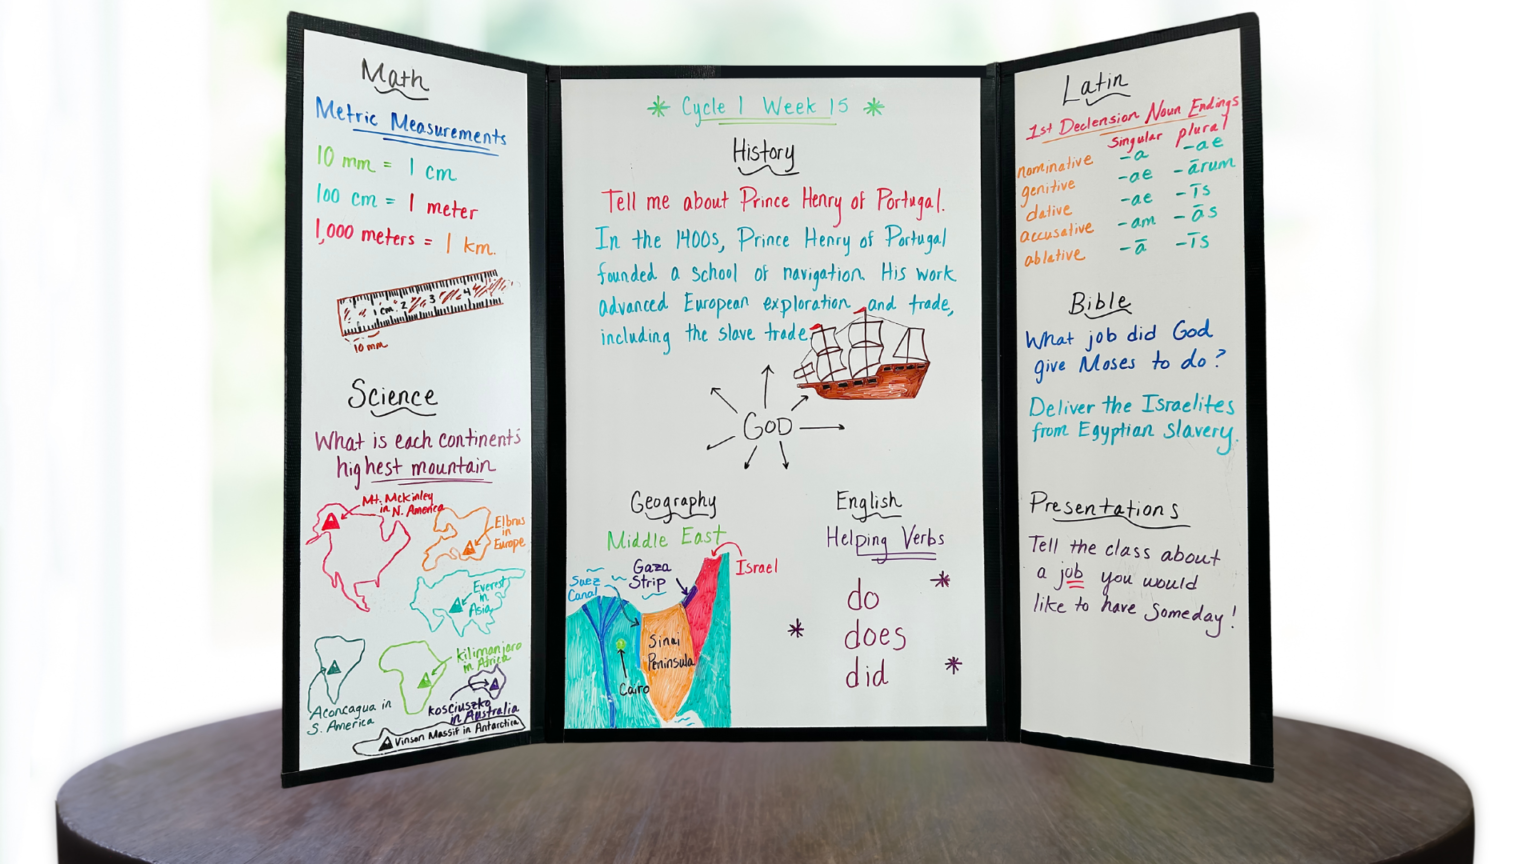 Math
Metric Measurements
10 mm = 1 cm
100 cm = 1 meter
1,000 meters = 1 km.
1 cm 2 3 4
10 mm
Science
What is each continents
highest mountain
Mt. McKinley
in N. America
Elbrus
in
Europe
Everest
in
Asia
Kilimanjaro
in Africa
Aconcagua in
S. America
Kosciuszko
in Australia
Vinson Massif in Antarctica
* Cycle 1 Week 15 *
History
Tell me about Prince Henry of Portugal.
In the 1400s, Prince Henry of Portugal
founded a school of navigation. His work
advanced European exploration and trade,
including the slave trade.
GOD
Geography
Middle East
Suez
Canal
Gaza
Strip
Israel
Sinai
Peninsula
Cairo
English
Helping Verbs
do
does
did
Latin
1st Declension Noun Endings
singular plural
nominative -a -ae
genitive -ae -ārum
dative -ae -īs
accusative -am -ās
ablative -ā -īs
Bible
What job did God
give Moses to do?
Deliver the Israelites
from Egyptian Slavery.
Presentations
Tell the class about
a job you would
like to have someday!